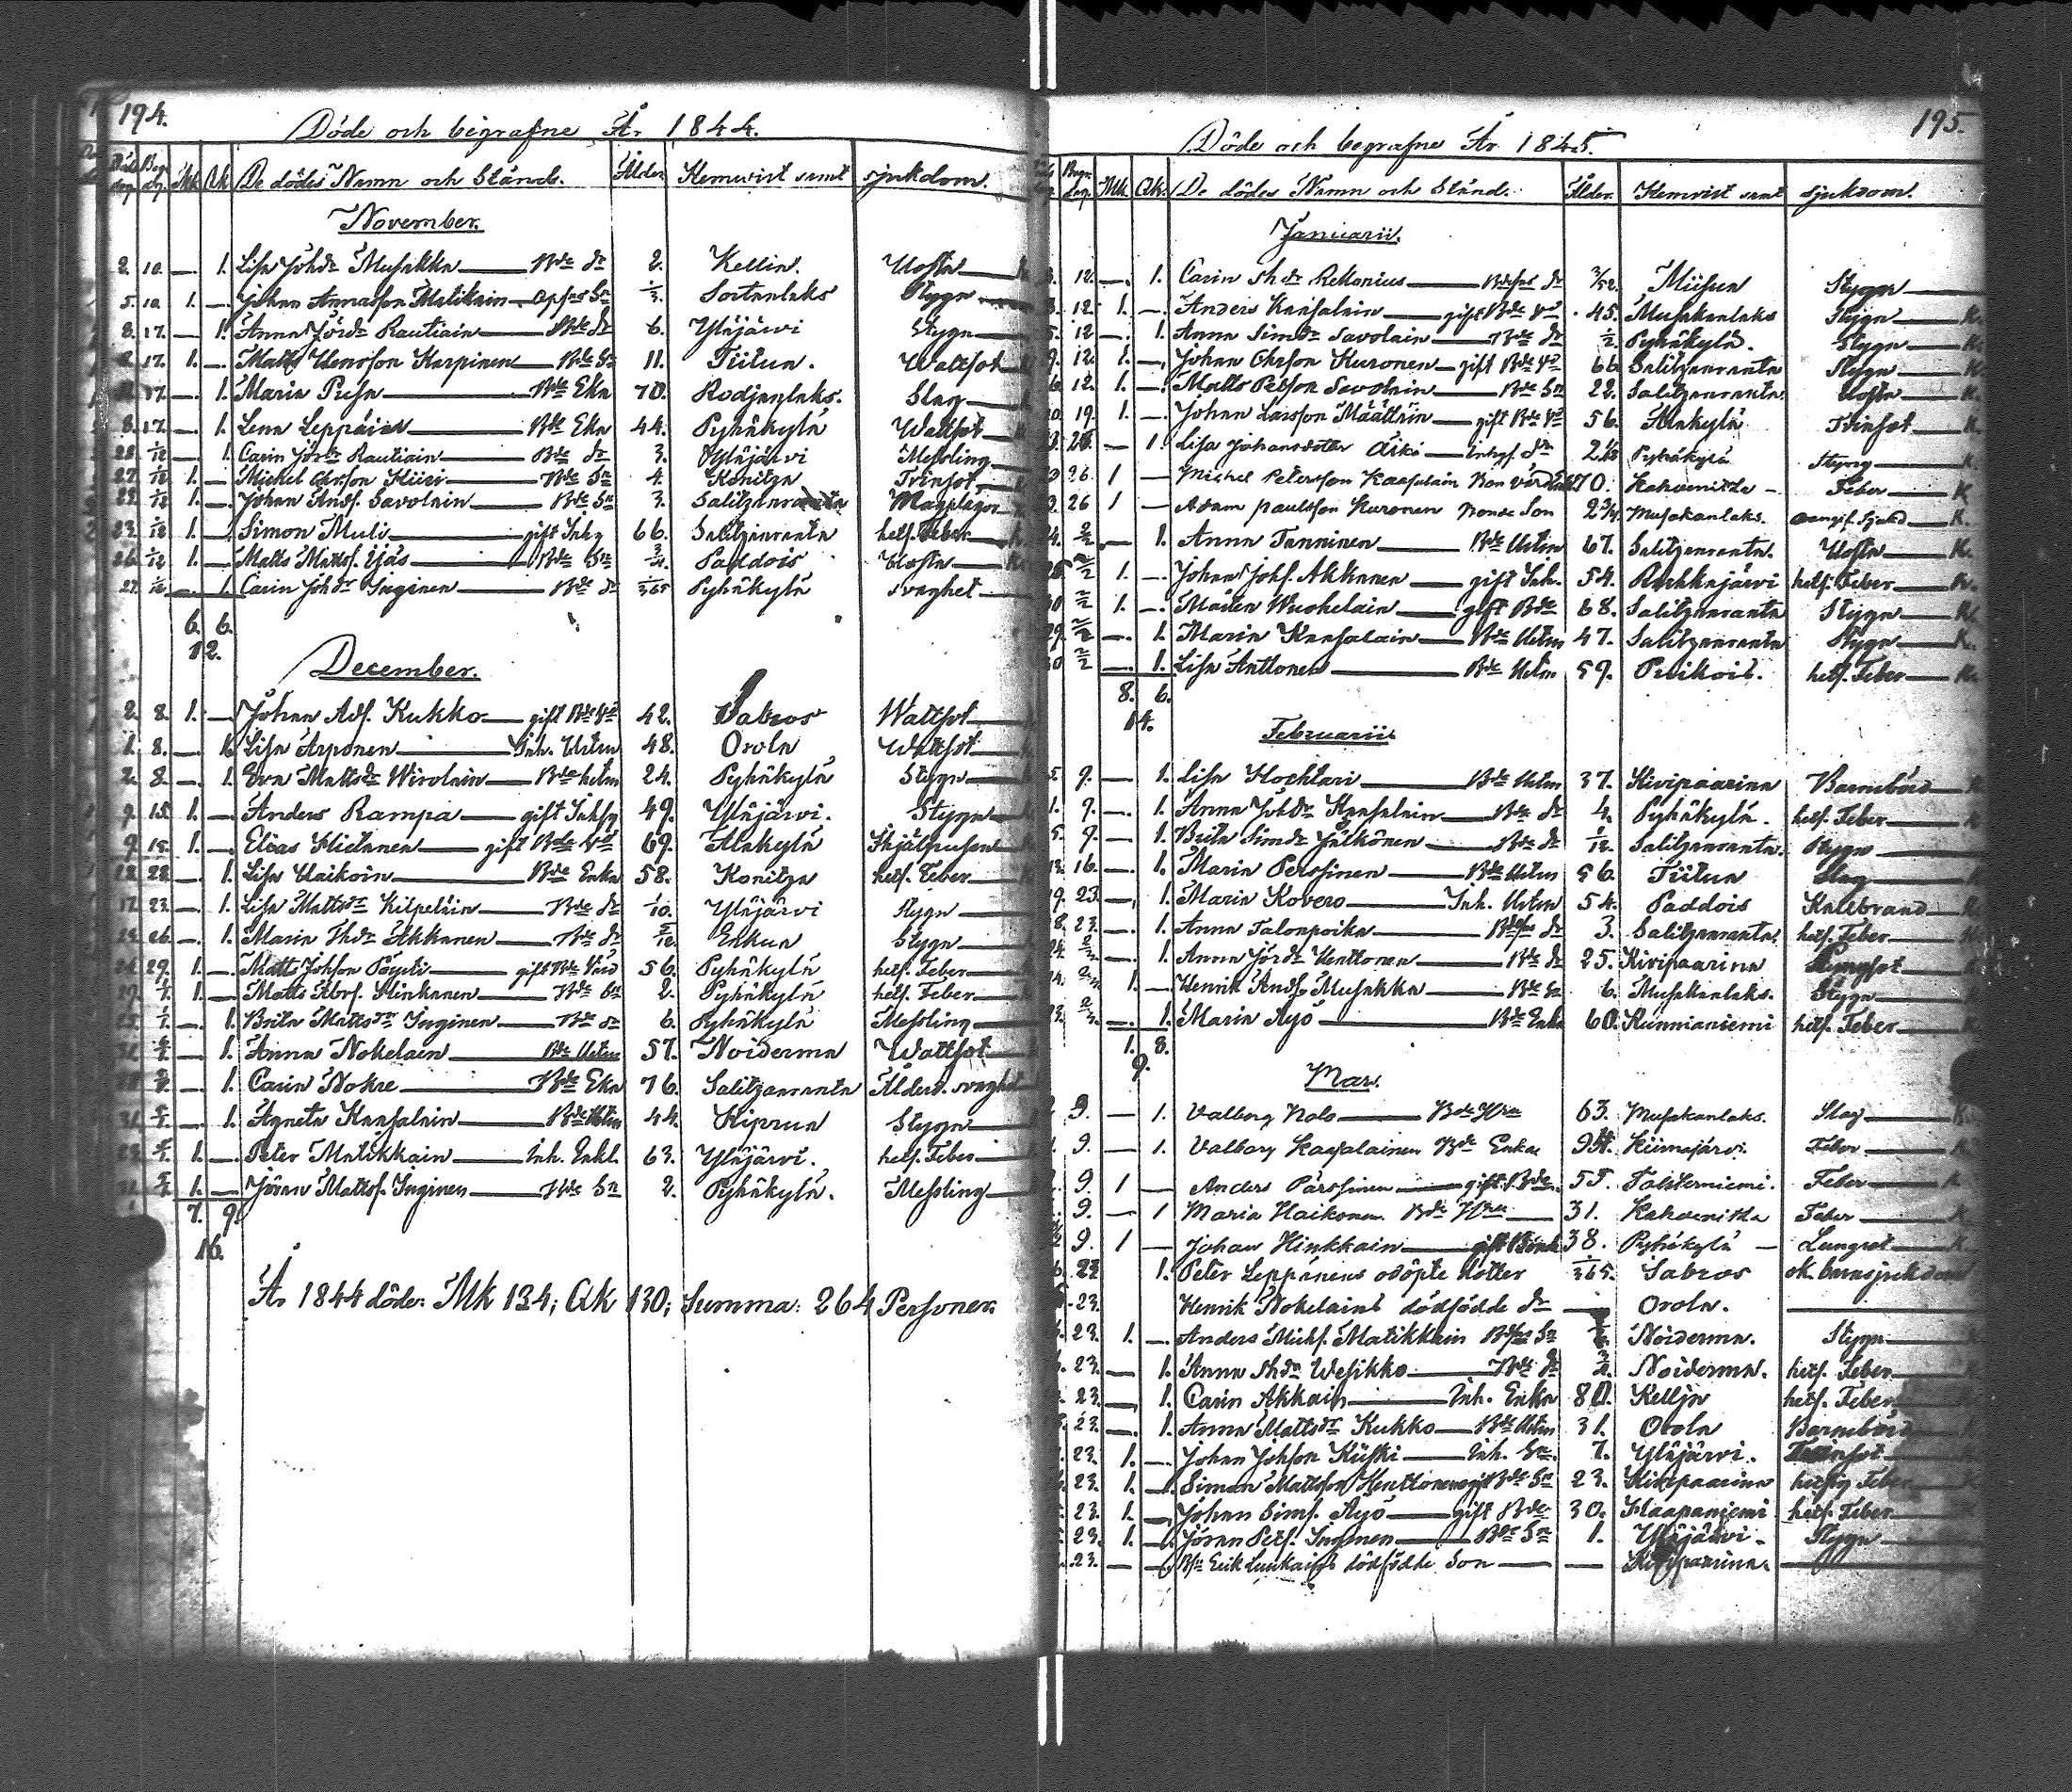 194.
Döde och begrafne År 1844.
Döds dag Begr dg Mk Qk De dödes Namn och Stånd. Ålder Hemvist samt sjukdom.
November.
2. 10. — 1. Lisa Joh.dr Musakka — Bde dr 2. Kellia. Hosta
5. 10. 1. — Johan Annasson Matikain 1/3. Sortanlaks Stygn
8. 17. — 1. Anna Jör.dr Rautiain — Bde dr 6. Yläjärvi Stygn
8. 17. 1. — Matts Henrsson Karpinen — Bde Sn 11. Tiitua. Wattsot
17. — 1. Maria Pusa — Bde Eka 70. Rodjanlaks. Slag
8. 17. — 1. Lena Leppäin — Bde Eka 44. Pyhäkylä Wattsot
28. 1/12 — 1. Carin Jör.dr Rautiain — Bde dr 3. Yläjärvi Messling
27. 1/12 1. — Mickel Chrson Hiiri — Bde Sn 4. Konitza Trinsot
29. 1/12 1. — Johan Andf. Savolain — Bde Sn 3. Salitzanranta Magplågor
23. 1/12 1. — Simon Muli — gift Inhy 66. Salitzanranta hetf. Feber
26. 1/12 1. — Matts Mattsf. Ijäs — Bde Sn 3/4. Paddois Hosta
27. 1/12 — 1. Carin Joh.dr Inginen — Bde dr 3/365 Pyhäkylä Svaghet
6. 6.
12.
December.
2. 8. 1. — Johan Adf. Kukko — gift Bde Vd 42. Sabros Wattsot
1. 8. — 1. Lisa Arponen — Inh. Hstru 48. Orola Wattsot
2. 8. — 1. Eva Matts.dr Wirolain — Bde hstru 24. Pyhäkylä Stygn
9. 15. 1. — Anders Rampa — gift Inhy 49. Yläjärvi. Stygn
9. 15. 1. — Elias Hietanen — gift Bde Vd 69. Alakylä
22. — 1. Lisa Uaikoin — Bde Enka 58. Konitza hetf. Feber
17. 23. — 1. Lisa Matts.dr Kilpeläin — Bde dr 1/10. Yläjärvi Stygn
26. — 1. Maria Th.dr Akkanen — Bde dr 5/12. Enkua Stygn
29. 1. — Matts Johson Pöysti — gift Bde Värd 56. Pyhäkylä hetf. Feber
1. — Matts Abrf. Hinkanen — Bde Sn 2. Pyhäkylä hetf. Feber
— 1. Brita Matts.dr Inginen — Bde dr 6. Pyhäkylä Messling
— 1. Anna Nokelain — Bde Hstru 57. Noiderma Wattsot
— 1. Carin Nokre — Bde Eka 76. Salitzanranta Ålderd. svaghet
— 1. Agneta Karsalain — Bde Hstru 44. Kiprua Stygn
1. — Peter Matikkain — Inh. Enkl. 63. Yläjärvi. hetf. Feber
1. — Jöran Mattsf. Inginen — Bde Sn 2. Pyhäkylä. Messling
7. 9.
16.
År 1844 döde: Mk 134; Qk 130; Summa: 264 Personer.
195.
Döde och begrafne År 1845.
Begr. dag. Mk. Qk. De dödes Namn och Stånd. Ålder. Hemvist samt sjukdom.
Januarii.
12. — 1. Carin Rekonius — dr Miisua Stygn
12. 1. — Anders Karsalain — gift Bde Vd 45. Musakanlaks Stygn K.
12 — 1. Anna Sim.dr Savolain — Bde dr 1/2. Pyhäkylä. Stygn K.
12. 1. — Johan Chrson Kuronen — gift Bde Vd 66. Salitzanranta Stygn K
12. 1. — Matts Petsson Savolain — Bde Sn 22. Salitzanranta Hosta K.
19. 1. — Johan Larsson Määttäin — gift Bde Vd 56. Alakylä Trinsot K.
26. — 1. Lisa Johansdotter Äikä — Inhys dr Pyhäkylä Styng K.
26. 1 — Michel Petersson Kaasalain 70. Kahvenitta — Feber K
26 1 — Adam Paulsson Kuronen Bonde Son 2 3/4 Musakanlaks. K.
2/2 — 1. Anna Tanninen — Bde Hstru 67. Salitzanranta. Hosta K.
2/2 1. — Johan Johf. Akkanen — gift Inh. 54. Ruskkajärvi hetf. Feber K.
2/2 1. — Mårten Wuohelain — gift Bde 68. Salitzanranta Stygn K.
2/2 — 1. Maria Karsalain — Bde Hstru 47. Salitzanranta Stygn K.
2/2 — 1. Lisa Anttonen — Bde Hstru 59. Puikois. hetf. Feber K.
8. 6.
14.
Februarii
9. — 1. Lisa Hochtari — Bde Hstru 37. Kivipaarina Barnsbörd
9. — 1. Anna Joh.dr Karsalain — Bde dr 4. Pyhäkylä. hetf. Feber
9. — 1. Brita Sim.dr Jälkönen — Bde dr 1/12. Salitzanranta. Stygn
16. — 1. Maria Perssinen — Bde Hstru 56. Tiitua Slag
23. — 1. Maria Kovero — Inh. Hstru 54. Paddois Kallbrand
23. — 1. Anna Talonpoika — dr 3. Salitzanranta. hetf. Feber
2/3 — 1. Anna Jör.dr Henttonen — Bde dr 25. Kivipaarina Lungsot
2/3 1. — Henrik Andf. Musakka — Bde Sn 6. Musakanlaks. Stygn
2/3 — 1. Maria Äyö — Bde Enka 60. Kunnianiemi hetf. Feber
1. 8.
9.
Mar.
9. — 1. Valborg Nolo — Bde Hru 63. Musakanlaks. Slag K
9. — 1. Valborg Kaasalainen Bde Enka Kiimajärvi. Feber
9. 1 — Anders Pärssinen — gift Bde 55. Talsterniemi. Feber
9. — 1 Maria Haikonen Bde Hru 31. Kahvenitta Feber
9. 1 — Johan Hinkkain — gift Bonde 38. Pyhäkylä — Lungsot K
23 1. Peter Leppänens odöpte dotter 1/365. Sabros ok. barnsjukdom
23. Henrik Nokelains dödfödde dr — Orola. —
23. 1. — Anders Michf. Matikkain Sn Noiderma. Stygn
23. — 1. Anna Wesikko — Bde dr Noiderma. hetf. Feber
23. — 1. Carin Akkain — Inh. Enka 80. Kellja hetf. Feber
23. — 1. Anna Matts.dr Kukko — Bde Hstru 31. Orola Barnsbörd
23. 1. — Johan Johson Küski — Inh. Sn. 7. Yläjärvi.
23. 1. — Simon Mattsson Henttonen gift Bde Sn 23. Kivipaarina hetsig Feber
23. 1. — Johan Simf. Äyö — gift Bde 30. Haapaniemi hetf. Feber
23. 1. — Jöran Petf. Inginen — Bde Sn 1. Yläjärvi. Stygn
23. — — Bde Erik Luukains dödfödde Son — — Kivipaarina. —